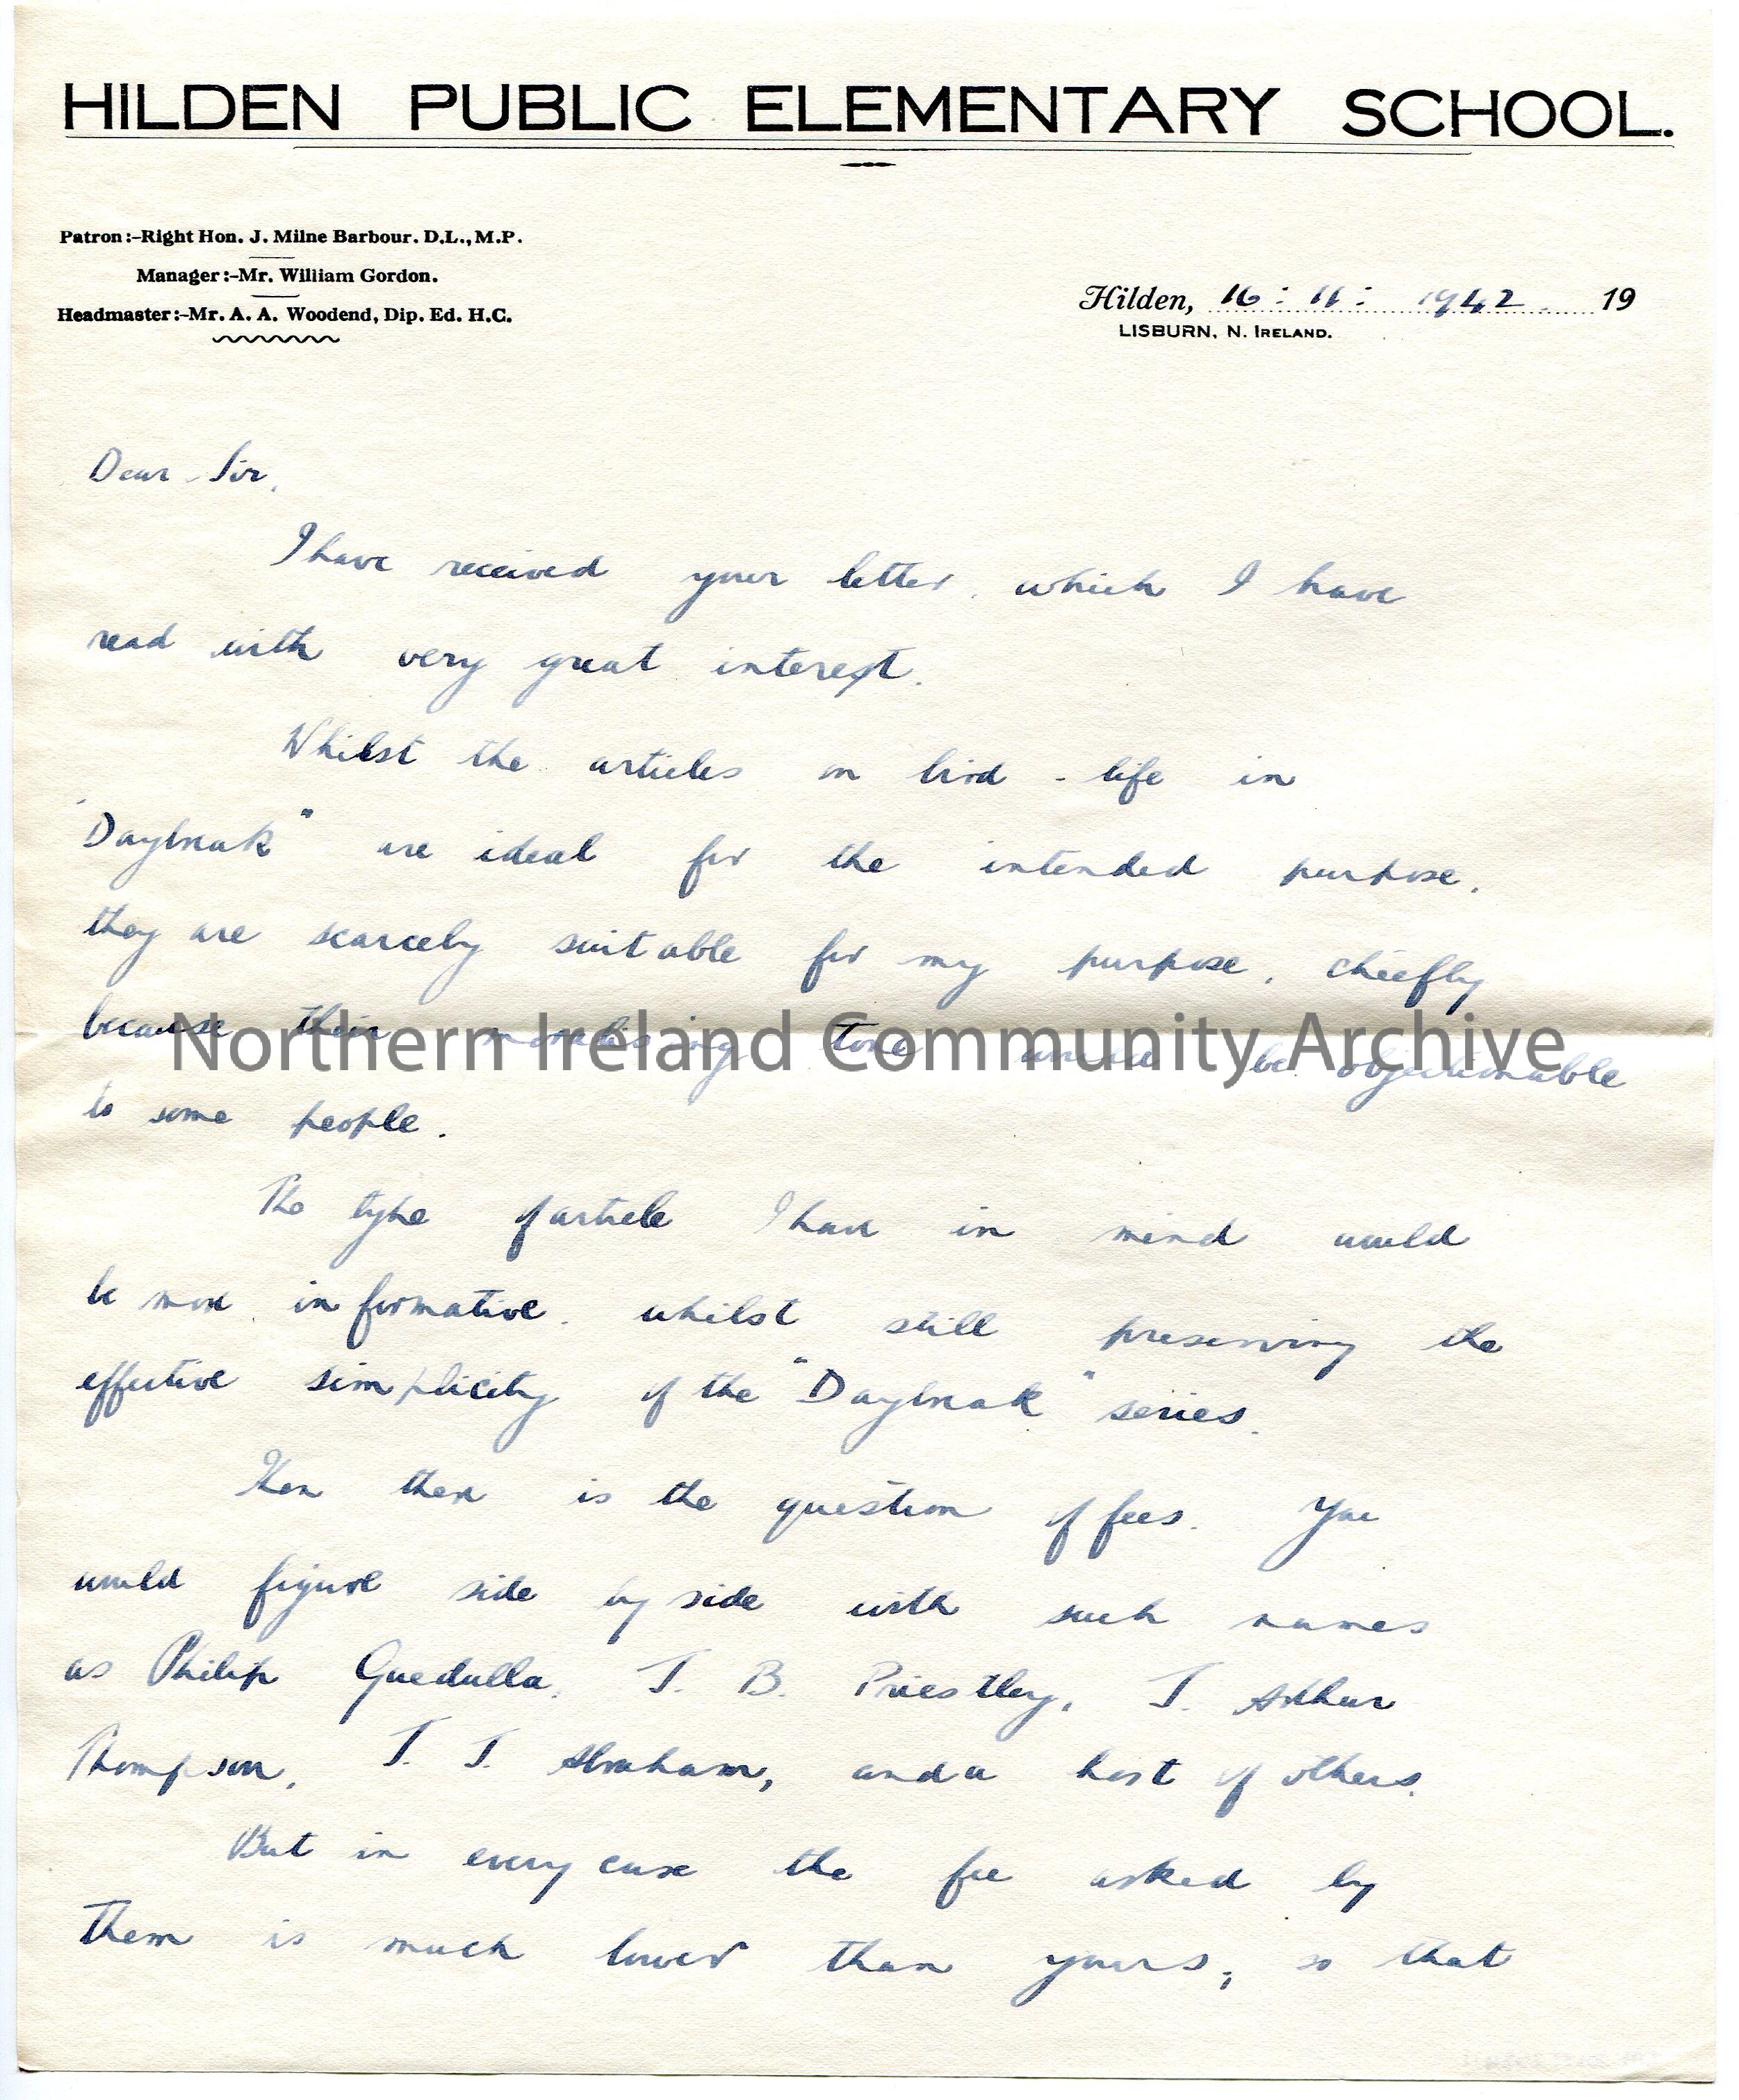 HILDEN PUBLIC ELEMENTARY SCHOOL.
Patron:-Right Hon. J. Milne Barbour. D.L., M.P.
Manager:-Mr. William Gordon.
Headmaster:-Mr. A. A. Woodend, Dip. Ed. H.C.
Hilden, 16 : 11 : 1942 19
LISBURN, N. IRELAND.
Dear Sir,
I have received your letter, which I have
read with very great interest.
Whilst the articles on bird-life in
"Daybreak" are ideal for the intended purpose,
they are scarcely suitable for my purpose, chiefly
because their moralising tone would be objectionable
Northern Ireland Community Archive
to some people.
The type of article I have in mind would
be more informative, whilst still preserving the
effective simplicity of the "Daybreak" series.
Then there is the question of fees. You
would figure side by side with such names
as Philip Guedulla, J. B. Priestley, J. Arthur
Thompson, J. J. Abraham, and a host of others.
But in every case the fee asked by
them is much lower than yours, so that